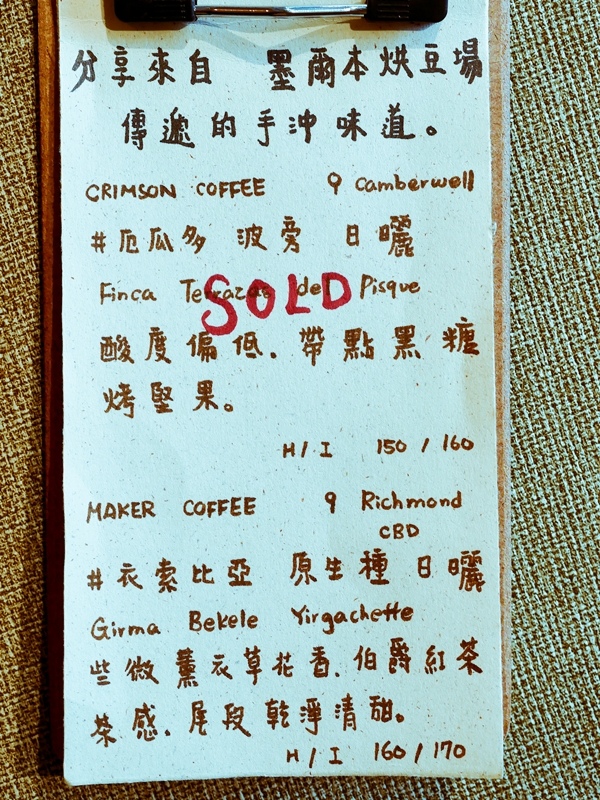 分享來自 墨爾本烘豆場
傳遞的手沖味道。
CRIMSON COFFEE Camberwell
#厄瓜多 波旁 日曬
Finca Terrazas del Pisque
SOLD
酸度偏低.帶點黑糖
烤堅果。
H/I 150/160
MAKER COFFEE Richmond
CBD
#衣索比亞 原生種 日曬
Girma Bekele Yirgacheffe
些微薰衣草花香.伯爵紅茶
茶感.尾段乾淨清甜。
H/I 160/170